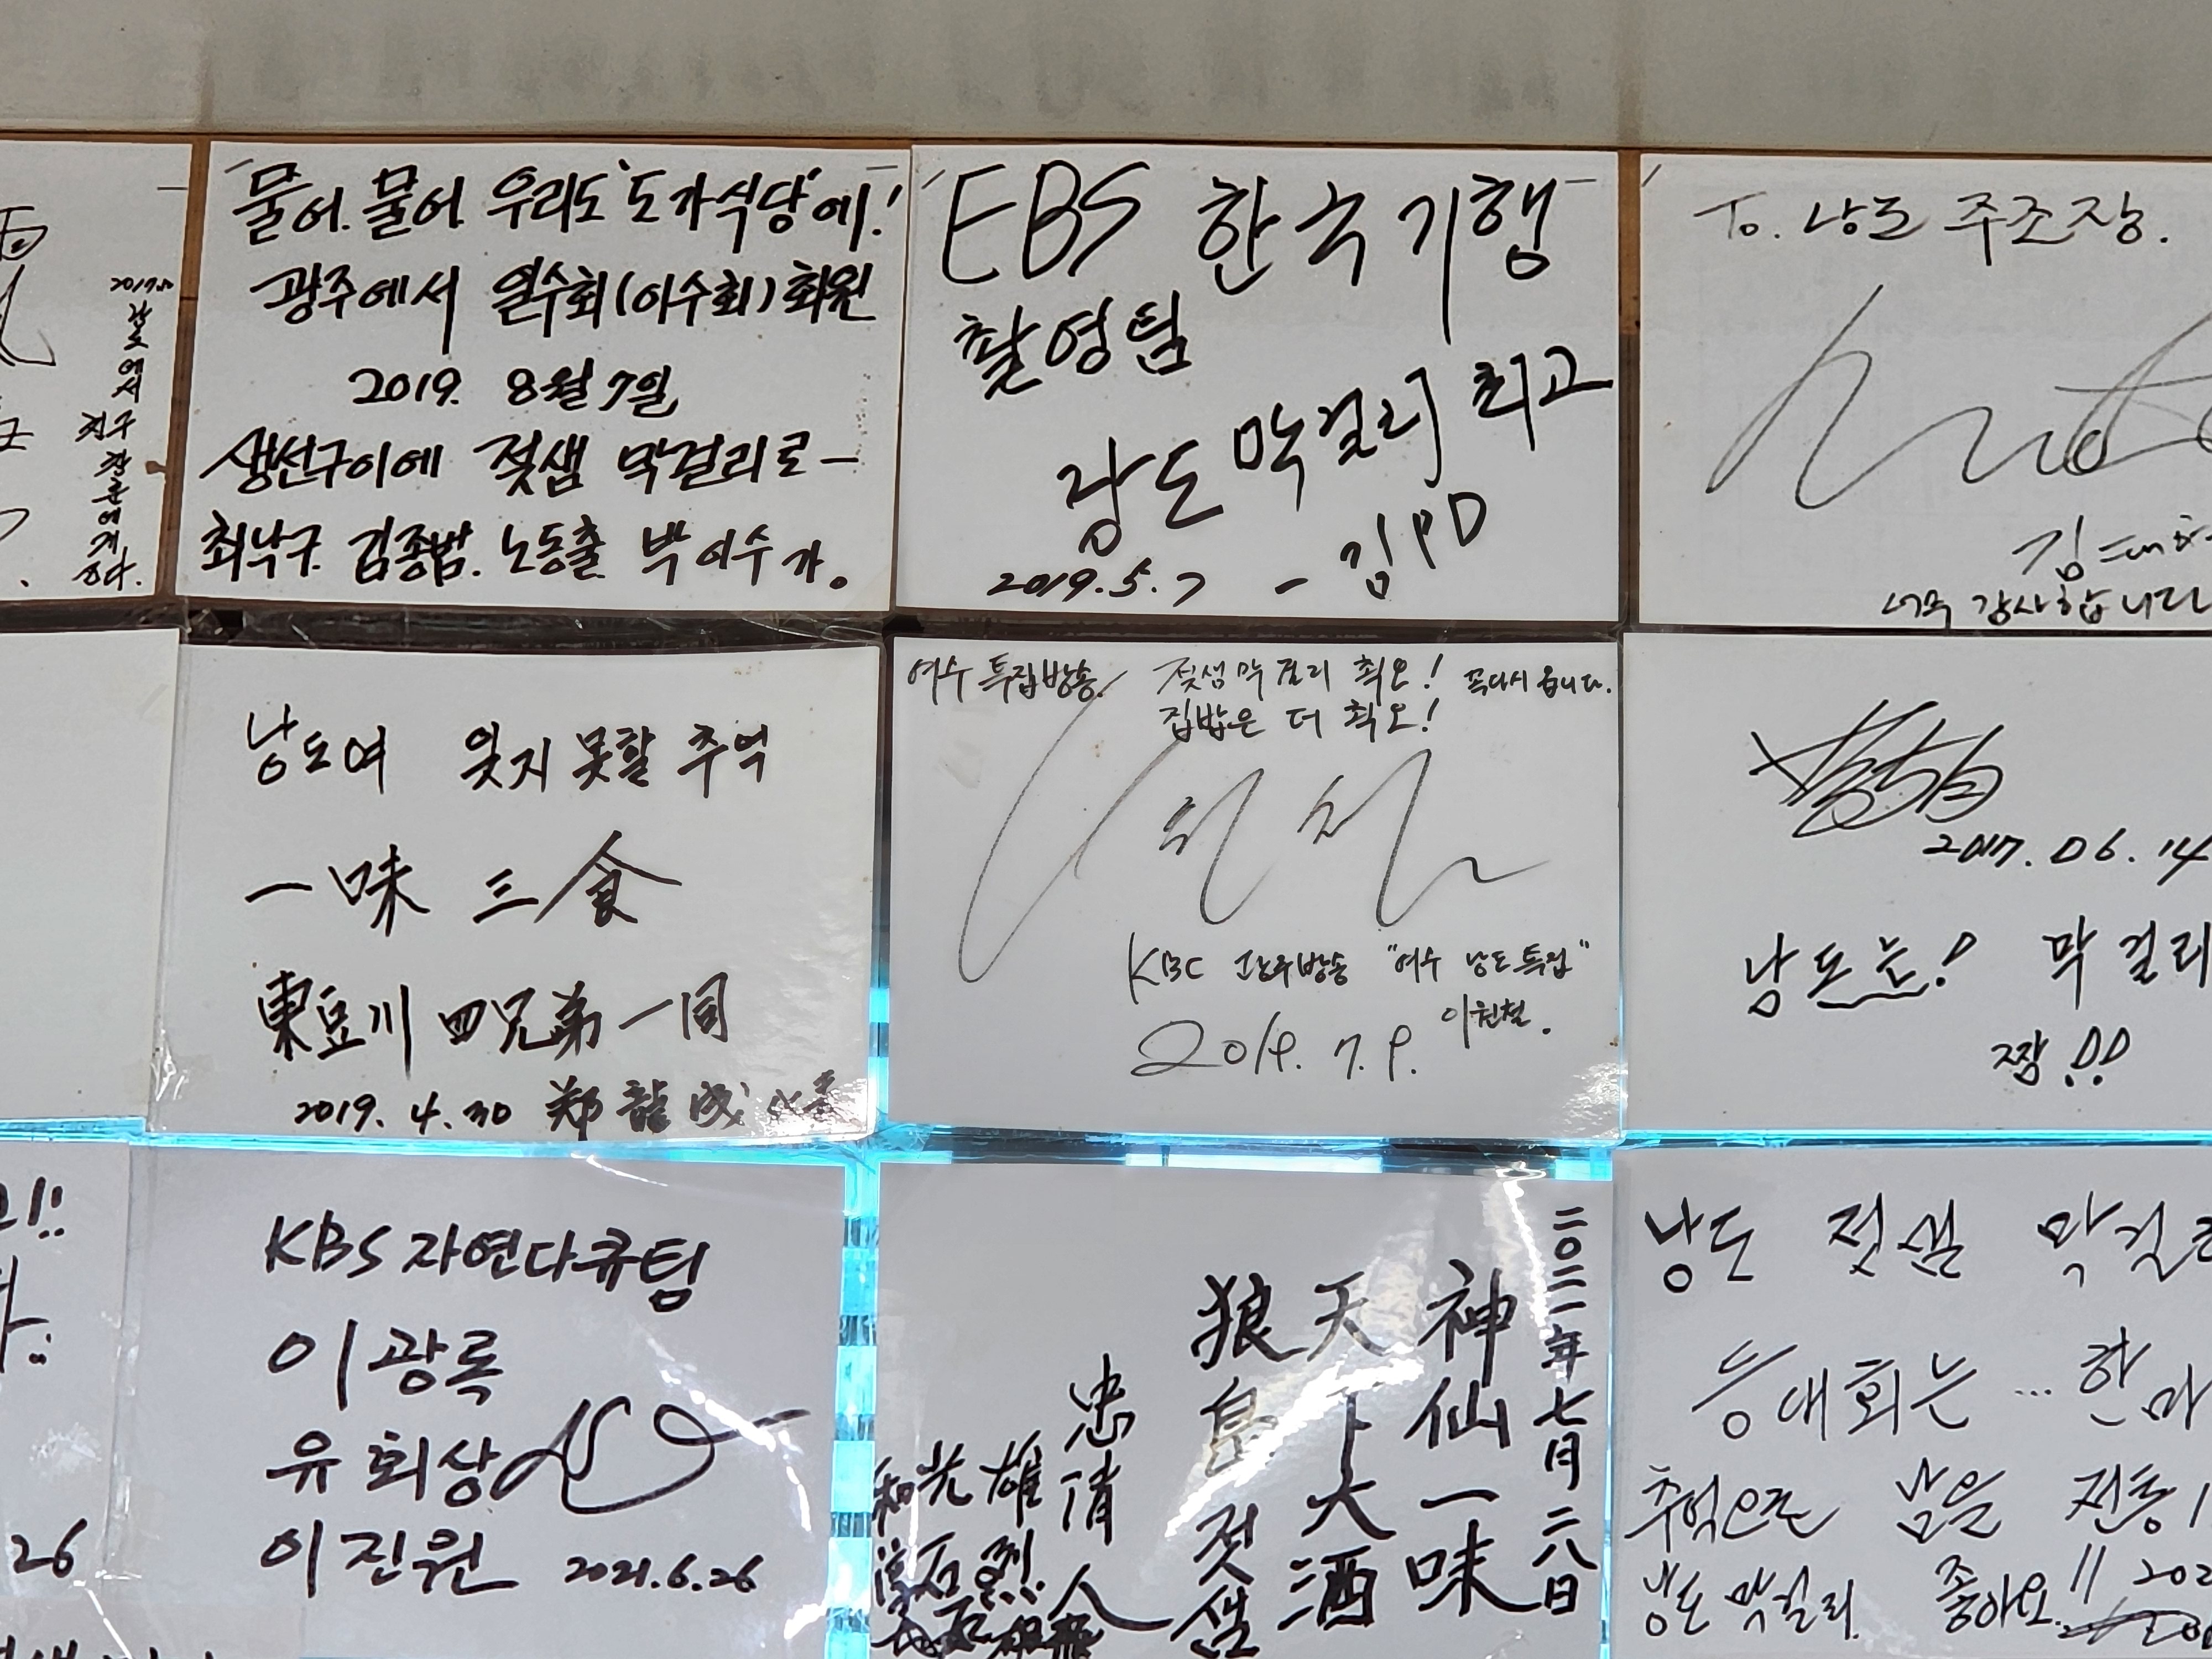 물어. 물어. 우리도 '도가식당'에!
광주에서 열수회(이수회)회원
2019. 8월 7일
생선구이에 젖샘 막걸리로-
최낙구. 김종범. 노동출. 박이수 가.
EBS 한국기행
촬영팀
낭도 막걸리 최고
2019.5.7 - 김PD
To. 낭도 주조장.
너무 감사합니다
2017.
낭도에서
친구
낭도여 잊지 못할 추억
一味 三食
東豆川 四兄弟 一同
2019. 4. 30 郑龍成
여수 특집방송 젖샘막걸리 최오! 꼭다시 옵니다.
집밥은 더 최오!
KBC 광주방송 "여수 낭도특집"
이원철.
2019. 7. 9.
2017. 06. 14
낭도는! 막걸리
짱!!
26
KBS 자연다큐팀
이광록
유회상
이진원 2021.6.26
二〇二一年七月二八日
神仙一味
天下大酒
狼島 젓샘
낭도 젖샘 막걸리
등대회는 ... 한마
추억으로 남을 전통
낭도 막걸리. 좋아요.!! 202